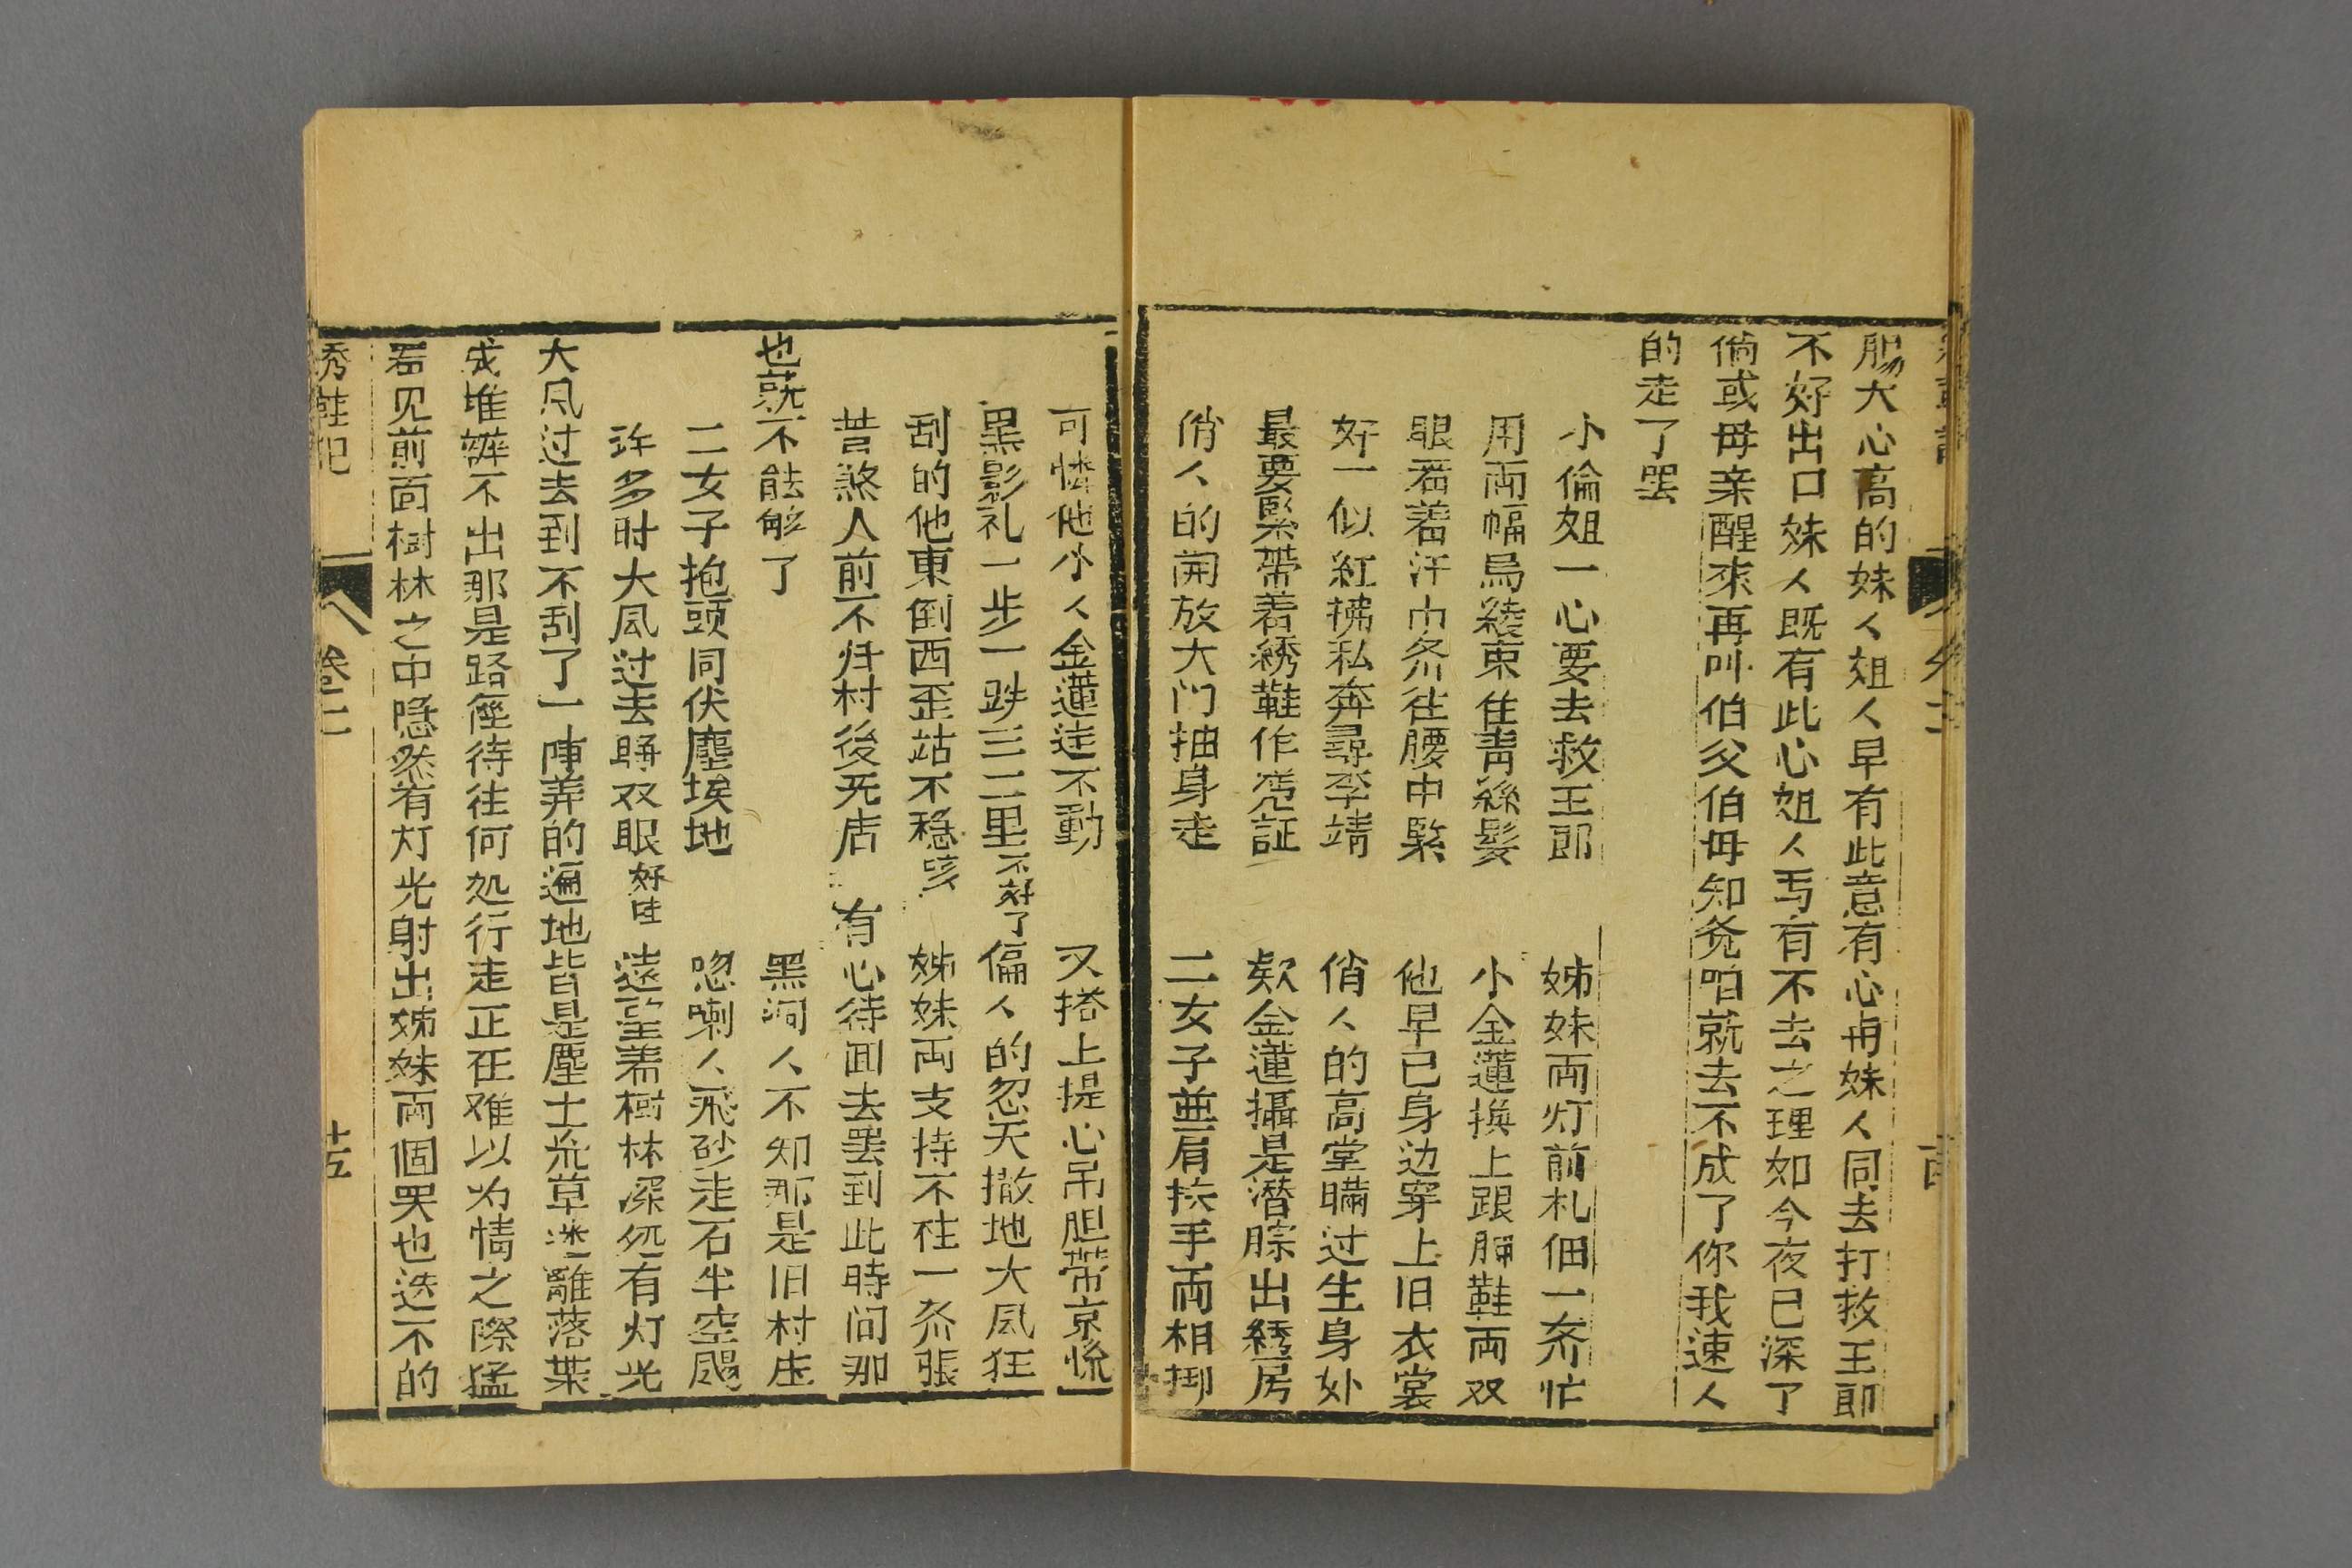 胆大心高的妹人姐人早有此意有心冉妹人同去打救王郎
不好出口妹人既有此心姐人丐有不去之理如今夜已深了
倘或母亲醒來再叫伯父伯母知兊咱就去不成了你我速人
的走了罢
小倫姐一心要去救王郎 姊妹両灯前札佃一斉忙
用両幅烏綾束住青絲髮 小金蓮換上跟脚鞋両双
眼看着汗巾糸往腰中緊 他早已身边穿上旧衣裳
好一似紅拂私奔尋李靖 俏人的高堂瞞过生身处
最要緊帶着綉鞋作凴証 欸金蓮攝是潜踪出綉房
俏人的開放大门抽身走 二女子並肩挨手両相掤
可憐他小人金蓮迋不動 又搭上提心吊胆帶京慌
黑影礼一步一跌三二里不好了 偏人的忽天撒地大風狂
刮的他東倒西歪站不稳咳 姊妹両支持不住一斉張
昔煞人前不归村後无店 有心待囬去罢到此時间那
也就不能够了
黑洞人不知那是旧村庄
二女子抱頭同伏塵埃地 忽喇人飛砂走石半空颺
许多时大風过去睜双眼好哇 遠望着樹林深処有灯光
大风过去到不刮了一陣弄的遍地皆是塵土荒草迷離落葉
成堆辨不出那是路徑待往何処行走正在难以为情之際猛
看见前面樹林之中隱然有灯光射出姊妹両個哭也迭不的
秀鞋记
卷二
十五